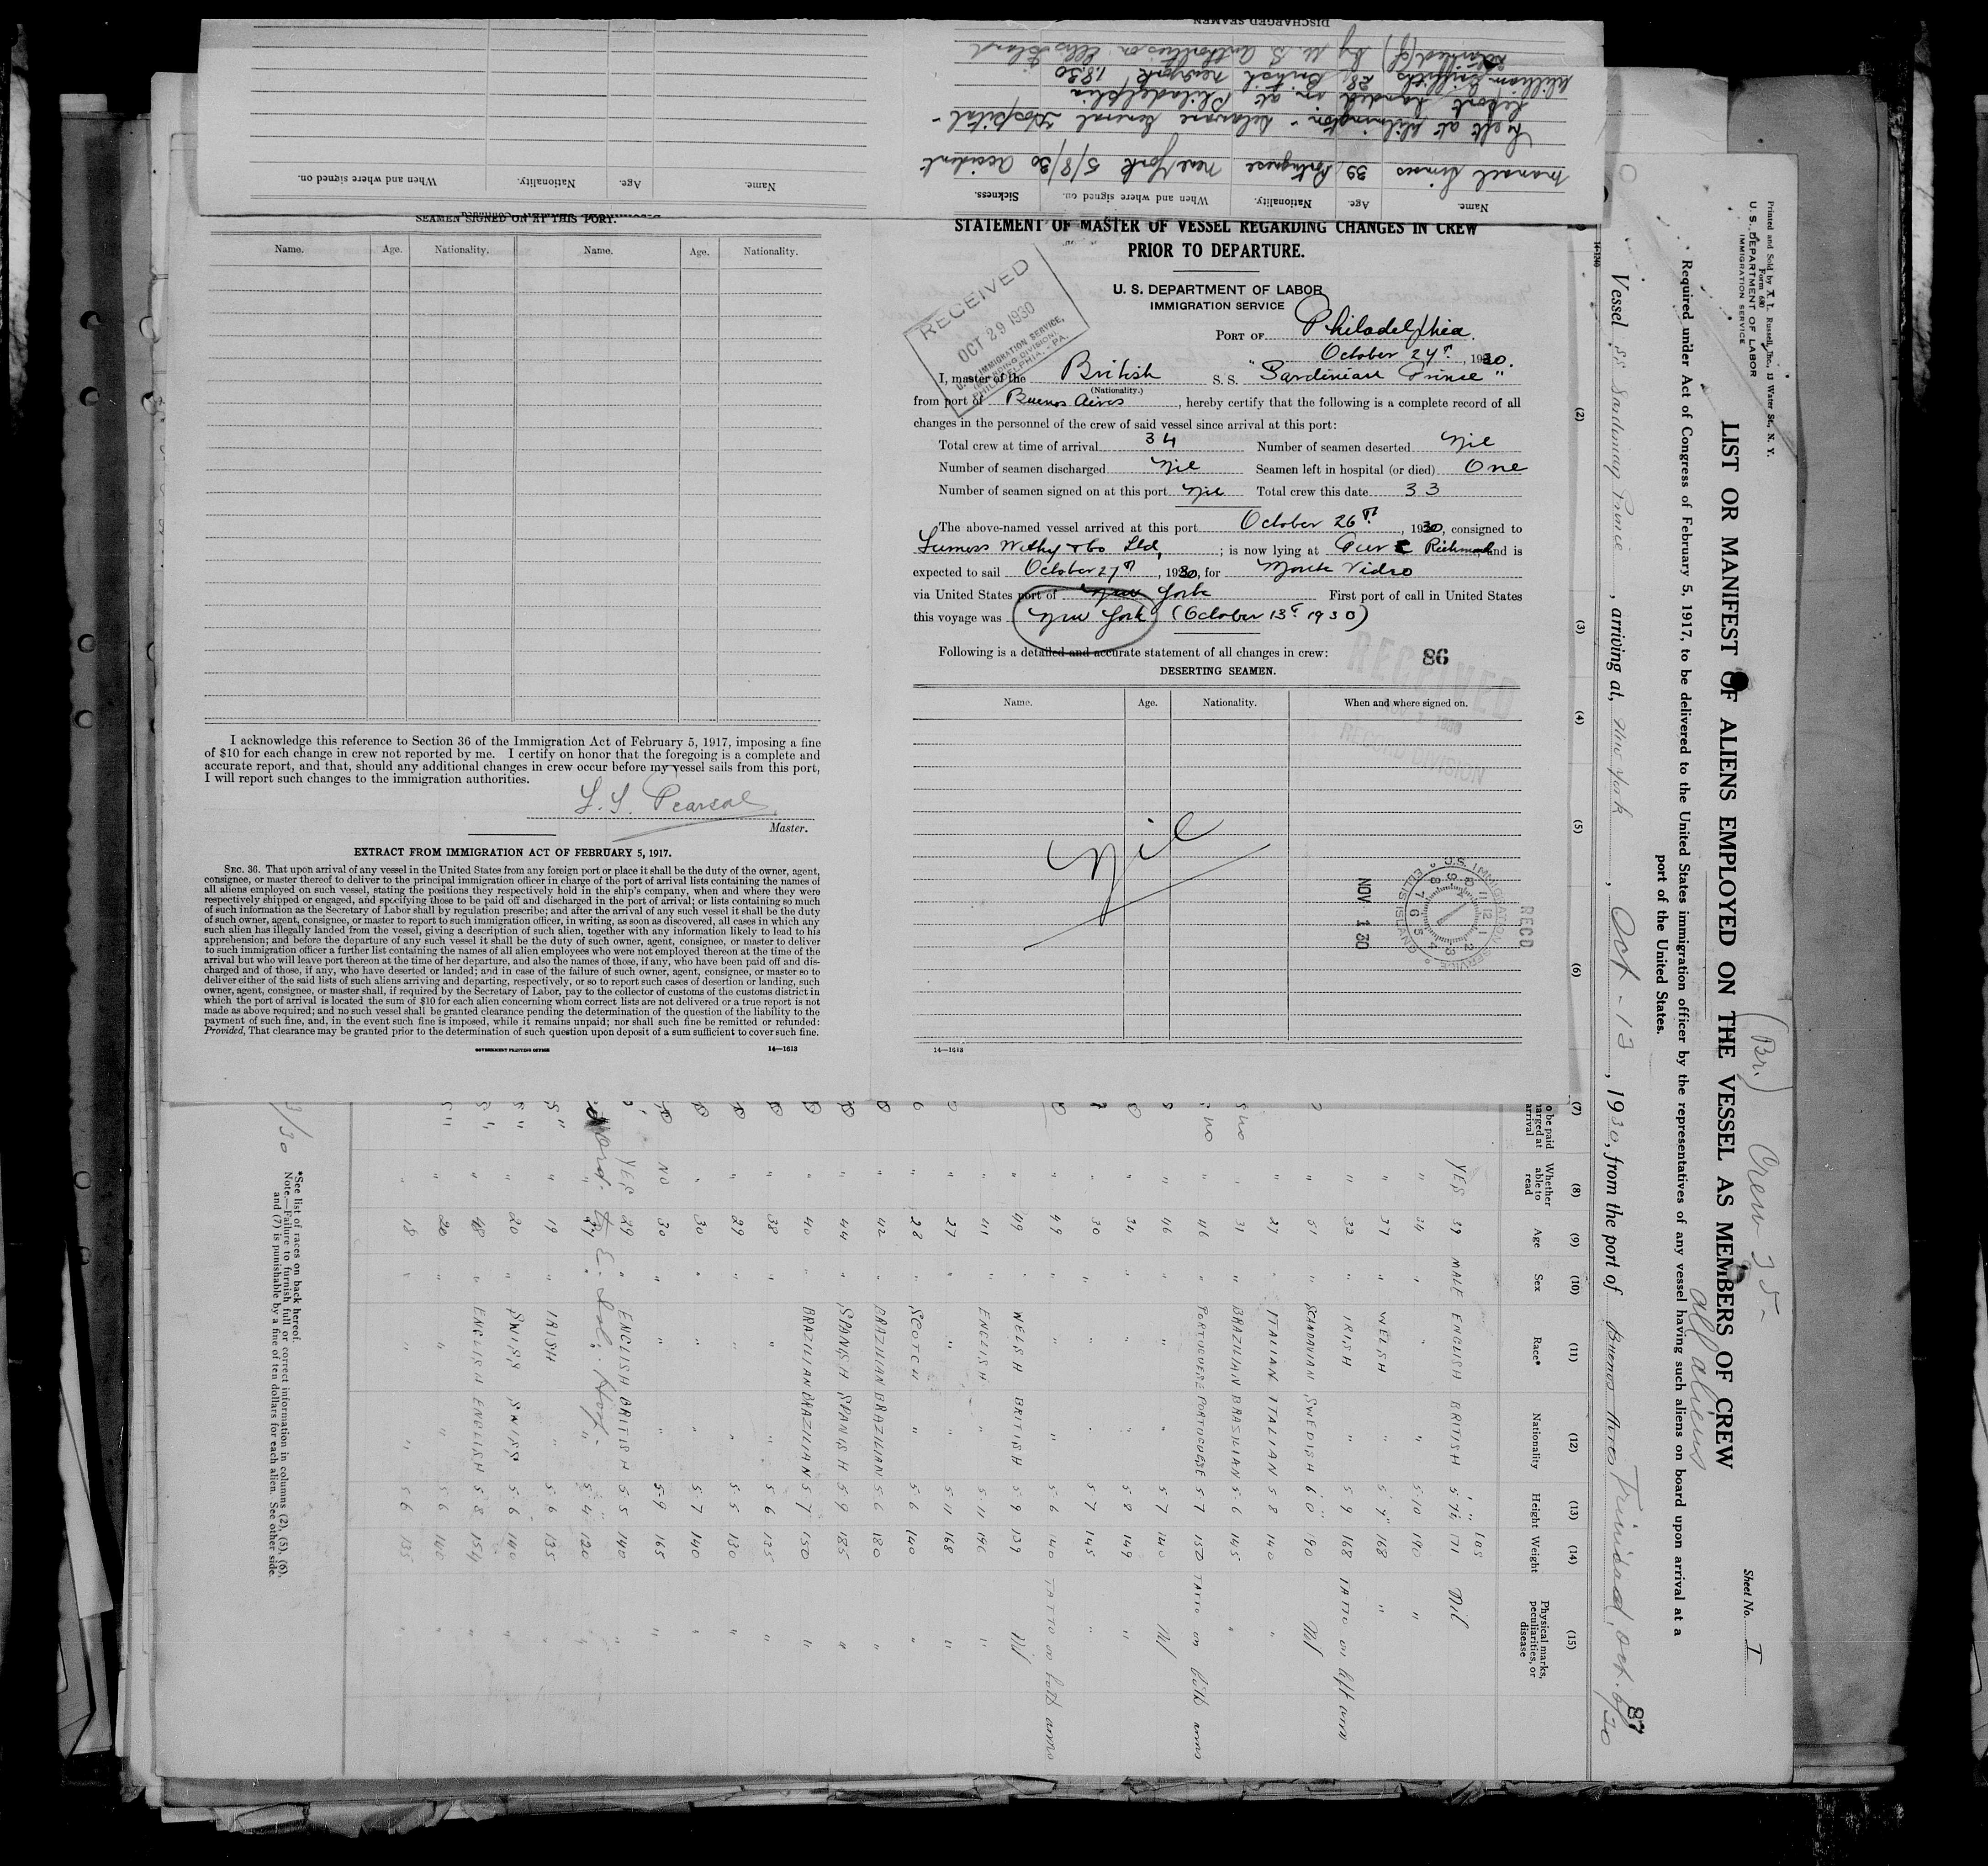 DISCHARGED SEAMEN
Name. Age. Nationality. When and where signed on. Sickness.
Manoel Simoes 39 Portuguese New York 5/8/30 Accident
Left at Wilmington - Delaware General Hospital -
Report handed in at Philadelphia
William Griffiths 28 British New York 1.8.30
by U. S. Authorities on Ellis Island
Name. Age. Nationality. When and where signed on.
SEAMEN SIGNED ON AT THIS PORT.
Name. Age. Nationality. Name. Age. Nationality.
I acknowledge this reference to Section 36 of the Immigration Act of February 5, 1917, imposing a fine
of $10 for each change in crew not reported by me. I certify on honor that the foregoing is a complete and
accurate report, and that, should any additional changes in crew occur before my vessel sails from this port,
I will report such changes to the immigration authorities.
Master.
EXTRACT FROM IMMIGRATION ACT OF FEBRUARY 5, 1917.
SEC. 36. That upon arrival of any vessel in the United States from any foreign port or place it shall be the duty of the owner, agent,
consignee, or master thereof to deliver to the principal immigration officer in charge of the port of arrival lists containing the names of
all aliens employed on such vessel, stating the positions they respectively hold in the ship's company, when and where they were
respectively shipped or engaged, and specifying those to be paid off and discharged in the port of arrival; or lists containing so much
of such information as the Secretary of Labor shall by regulation prescribe; and after the arrival of any such vessel it shall be the duty
of such owner, agent, consignee, or master to report to such immigration officer, in writing, as soon as discovered, all cases in which any
such alien has illegally landed from the vessel, giving a description of such alien, together with any information likely to lead to his
apprehension; and before the departure of any such vessel it shall be the duty of such owner, agent, consignee, or master to deliver
to such immigration officer a further list containing the names of all alien employees who were not employed thereon at the time of the
arrival but who will leave port thereon at the time of her departure, and also the names of those, if any, who have been paid off and dis-
charged and of those, if any, who have deserted or landed; and in case of the failure of such owner, agent, consignee, or master so to
deliver either of the said lists of such aliens arriving and departing, respectively, or so to report such cases of desertion or landing, such
owner, agent, consignee, or master shall, if required by the Secretary of Labor, pay to the collector of customs of the customs district in
which the port of arrival is located the sum of $10 for each alien concerning whom correct lists are not delivered or a true report is not
made as above required; and no such vessel shall be granted clearance pending the determination of the question of the liability to the
payment of such fine, and, in the event such fine is imposed, while it remains unpaid; nor shall such fine be remitted or refunded:
Provided, That clearance may be granted prior to the determination of such question upon deposit of a sum sufficient to cover such fine.
GOVERNMENT PRINTING OFFICE 14—1613
STATEMENT OF MASTER OF VESSEL REGARDING CHANGES IN CREW
PRIOR TO DEPARTURE.
U. S. DEPARTMENT OF LABOR
IMMIGRATION SERVICE
RECEIVED
OCT 29 1930
U.S. IMMIGRATION SERVICE,
PHILADELPHIA, - PA.
PORT OF Philadelphia.
October 27th, 1930.
I, master of the British S. S. "Sardinian Prince"
(Nationality.)
from port of Buenos Aires, hereby certify that the following is a complete record of all
changes in the personnel of the crew of said vessel since arrival at this port:
Total crew at time of arrival 34 Number of seamen deserted Nil
Number of seamen discharged Nil Seamen left in hospital (or died) One
Number of seamen signed on at this port Nil Total crew this date 33
The above-named vessel arrived at this port October 26th, 1930, consigned to
Furness Withy & Co Ltd,; is now lying at Pier C Richmond, and is
expected to sail October 27th, 1930, for Monte Video
via United States port of New York First port of call in United States
this voyage was New York (October 13th 1930)
Following is a detailed and accurate statement of all changes in crew:
86
RECEIVED
RECORD DIVISION
DESERTING SEAMEN.
Name. Age. Nationality. When and where signed on.
Nil
NOV 1 30
U.S. IMMIGRATION SERVICE
ELLIS ISLAND
RECD
14—1613
Printed and Sold by X. L. Russell, Inc., 13 Water St., N. Y.
Form 680
U. S. DEPARTMENT OF LABOR
IMMIGRATION SERVICE
(Br.) Crew 35-
all aliens
Sheet No. I
LIST OR MANIFEST OF ALIENS EMPLOYED ON THE VESSEL AS MEMBERS OF CREW
Required under Act of Congress of February 5, 1917, to be delivered to the United States immigration officer by the representatives of any vessel having such aliens on board upon arrival at a
port of the United States.
87
Vessel SS Sardinian Prince, arriving at, New York, Oct - 13, 1930, from the port of Buenos Aires Trinidad, Oct. 6/30
(2) (3) (4) (5) (6) (7) (8) (9) (10) (11) (12) (13) (14) (15)
Whether able to read Age Sex Race* Nationality Height Weight Physical marks, peculiarities, or disease
YES 39 MALE ENGLISH BRITISH 5 7½ 171 Nil
" 34 " " " 5 10 190 "
" 37 " WELSH " 5 7 168 "
" 32 " IRISH " 5 9 168 TATTO on left arm
" 51 " SCANDAVIAN SWEDISH 6 0 190 Nil
" 27 " ITALIAN ITALIAN 5 8 140 "
" 31 " BRAZILIAN BRAZILIAN 5 6 145 "
" 46 " PORTUGUESE PORTUGUESE 5 7 150 TATTO on both arms
" 46 " " " 5 7 140 Nil
" 34 " " " 5 8 149 "
" 30 " " " 5 7 145 "
" 49 " " " 5 6 140 TATTO on both arms
" 49 " WELSH BRITISH 5 9 139 Nil
" 41 " ENGLISH " 5 11 196 "
" 27 " " " 5 11 168 "
" 28 " SCOTCH " 5 6 140 "
" 42 " BRAZILIAN BRAZILIAN 5 6 180 "
" 44 " SPANISH SPANISH 5 9 185 "
" 40 " BRAZILIAN BRAZILIAN 5 7 150 "
" 38 " " " 5 6 135 "
" 29 " " " 5 5 130 "
" 30 " " " 5 7 140 "
NO 30 " " " 5 9 165 "
YES 29 " ENGLISH BRITISH 5 5 140 "
5 4 120 "
" 19 " IRISH " 5 6 135 "
" 20 " SWISS SWISS 5 6 140 "
" 48 " ENGLISH ENGLISH 5 8 154 "
" 20 " " " 5 6 140 "
" 18 " " " 5 6 135 "
*See list of races on back hereof.
Note.—Failure to furnish full or correct information in columns (2), (5), (6),
and (7) is punishable by a fine of ten dollars for each alien. See other side.